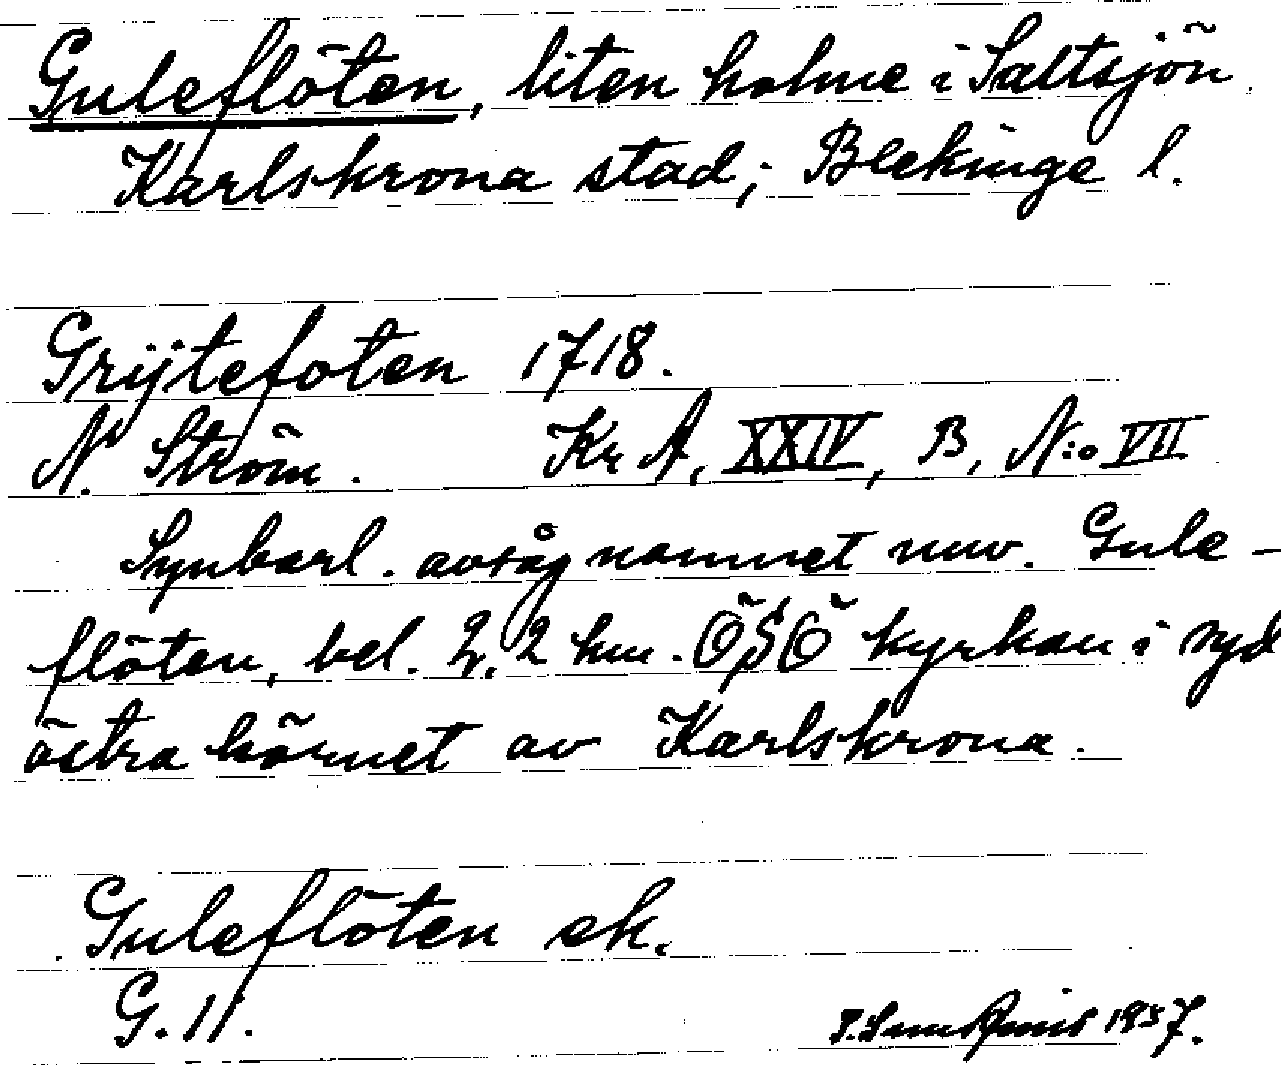 Guleflöten, liten holme i Saltsjön.
Karlskrona stad; Blekinge l.
Grijtefoten 1718.
N. Ström. Kr A, XXIV, B, N:o VII
Synbarl. avsåg namnet nuv. Gule-
flöten, bel. 2,2 km. ÖSÖ kyrkan i syd
östra hörnet av Karlskrona.
Guleflöten ek.
G. 11.
1937.